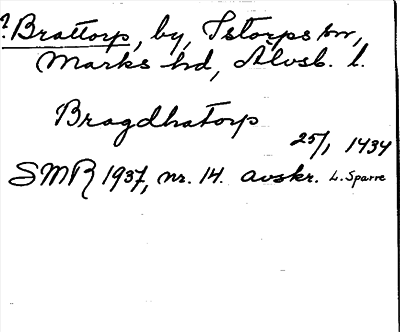 ? Brattorp, by, Istorps sn,
Marks hd, Älvsb. l.
Bragdhatorp
25/1 1434
SMR 1937, nr. 14. avskr. L. Sparre